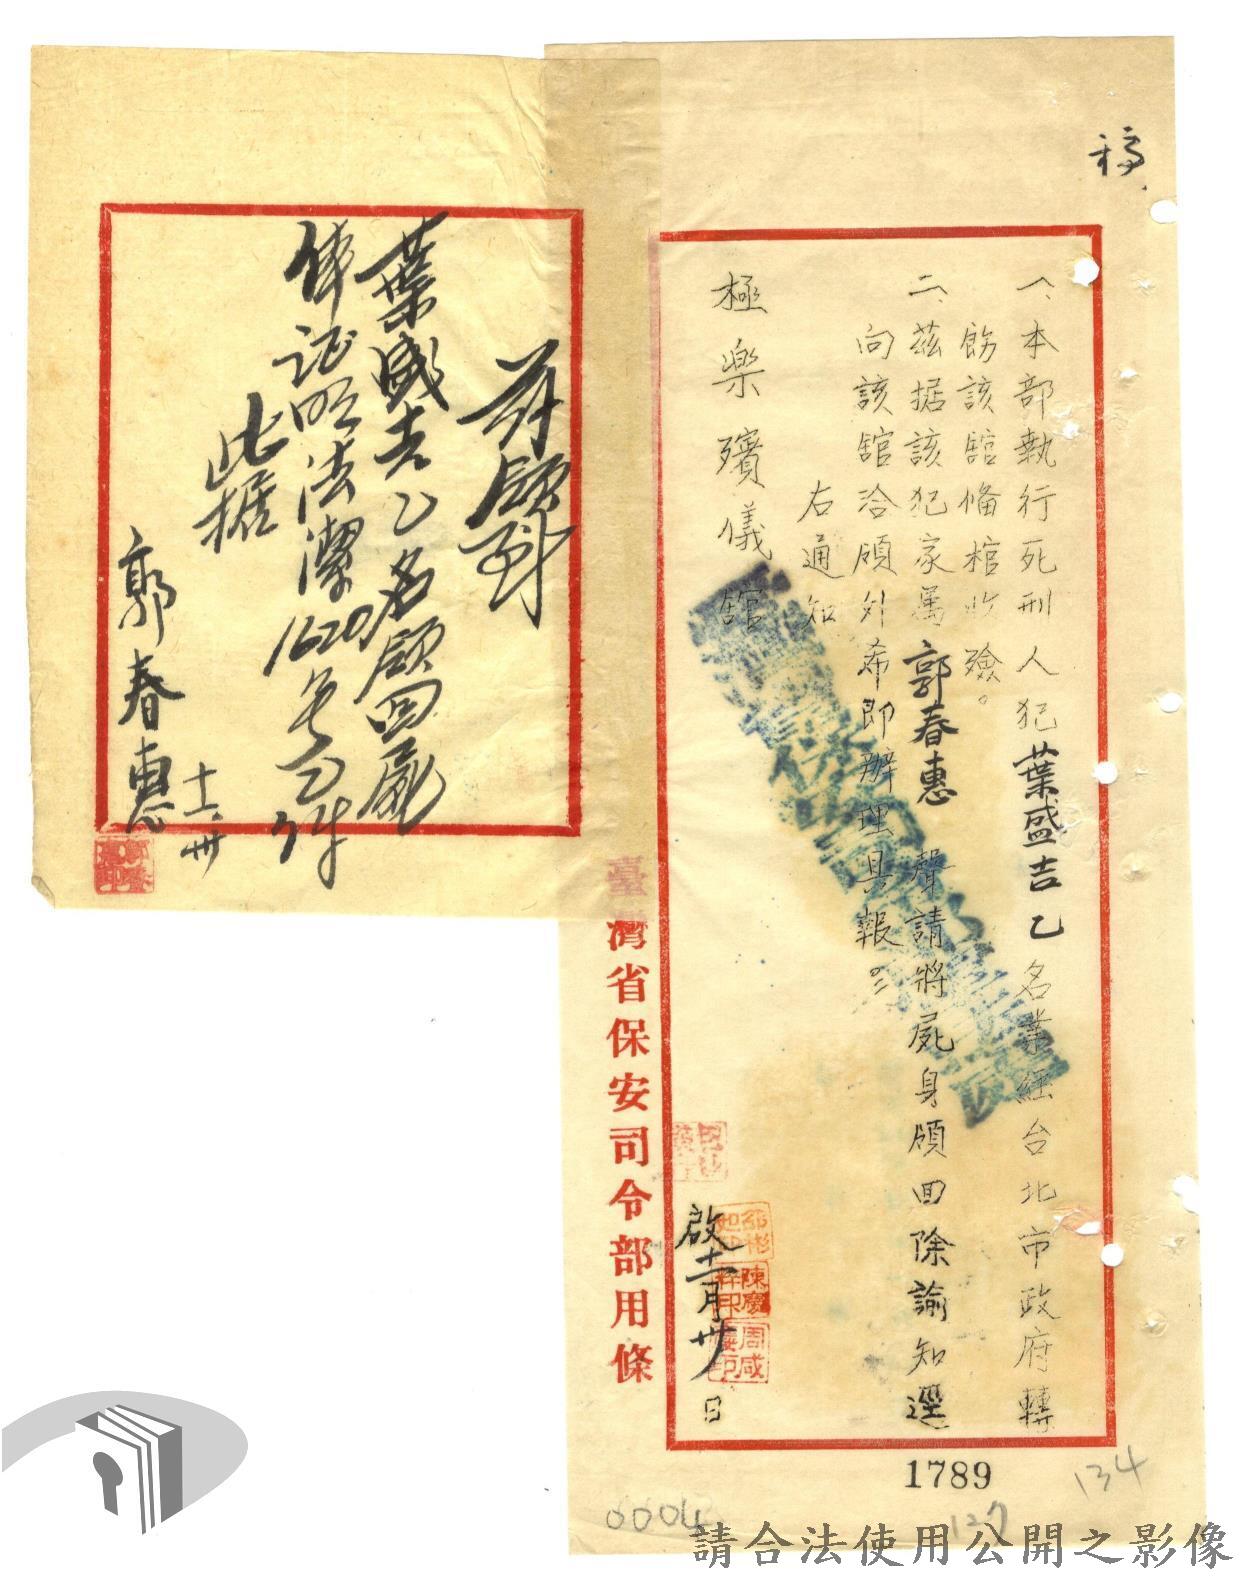 稿
一、本部執行死刑人犯葉盛吉乙名業經台北市政府轉
飭該館備棺收殮。
二、茲据該犯家属郭春惠聲請將屍身領回除諭知逕
向該館洽領外希即辦理具報。
右通知
極樂殯儀館
啟十一月卅日
臺灣省保安司令部用條
茲領到
葉盛吉乙名領回屍
体证明法潔1620号乙件
此据
郭春惠
十一、卅
1789
134
127
0004
請合法使用公開之影像